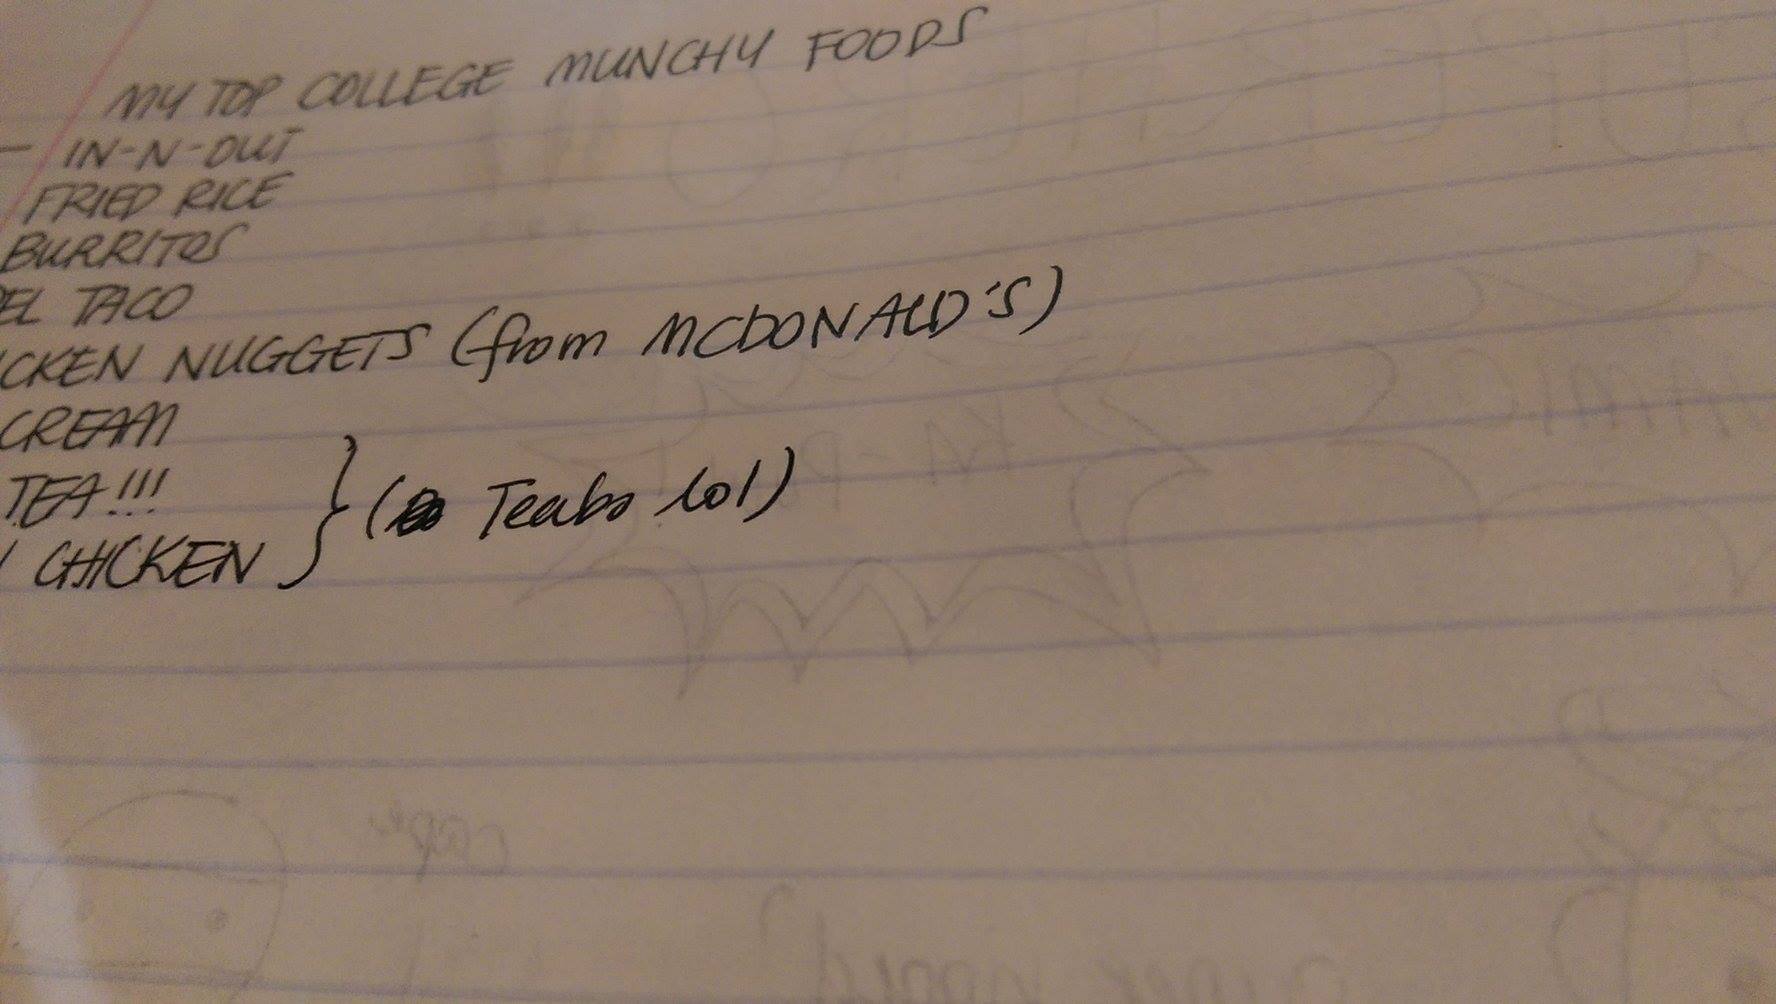 MY TOP COLLEGE MUNCHY FOODS
- IN-N-OUT
FRIED RICE
BURRITOS
EL TACO
CKEN NUGGETS (from MCDONALD'S)
CREAM
TEA!!!
CHICKEN } (Teabo lol)